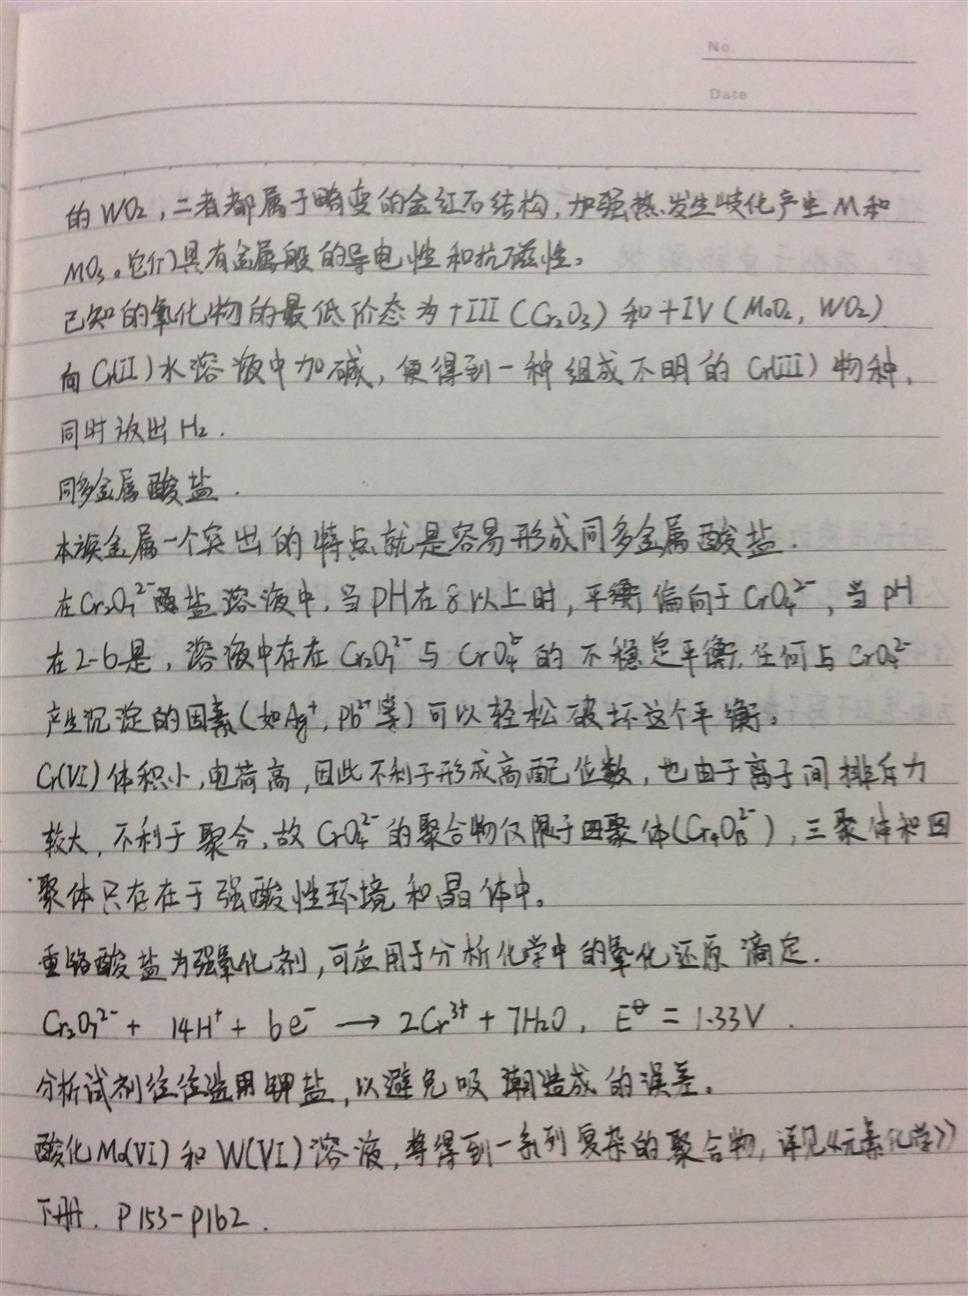 No.
Date
的WO₂，二者都属于畸变的金红石结构，加强热发生歧化产生M和
MO₃。它们具有金属般的导电性和抗磁性。
已知的氧化物的最低价态为+III（Cr₂O₃）和+IV（MoO₂，WO₂）
向Cr(II)水溶液中加碱，便得到一种组成不明的Cr(III)物种，
同时放出H₂.
同多金属酸盐.
本族金属一个突出的特点就是容易形成同多金属酸盐.
在Cr₂O₇²⁻盐溶液中，当pH在8以上时，平衡偏向于CrO₄²⁻，当pH
在2-6是，溶液中存在Cr₂O₇²⁻与CrO₄²⁻的不稳定平衡，任何与CrO₄²⁻
产生沉淀的因素（如Ag⁺，Pb²⁺等）可以轻松破坏这个平衡。
Cr(VI)体积小，电荷高，因此不利于形成高配位数，也由于离子间排斥力
较大，不利于聚合，故CrO₄²⁻的聚合物仅限于四聚体（Cr₄O₁₃²⁻），三聚体和四
聚体只存在于强酸性环境和晶体中。
重铬酸盐为强氧化剂，可应用于分析化学中的氧化还原滴定.
Cr₂O₇²⁻ + 14H⁺ + 6e⁻ → 2Cr³⁺ + 7H₂O，E⊖ = 1.33V.
分析试剂往往选用钾盐，以避免吸潮造成的误差。
酸化Mo(VI)和W(VI)溶液，将得到一系列复杂的聚合物，详见《元素化学》
下册. P153-P162.